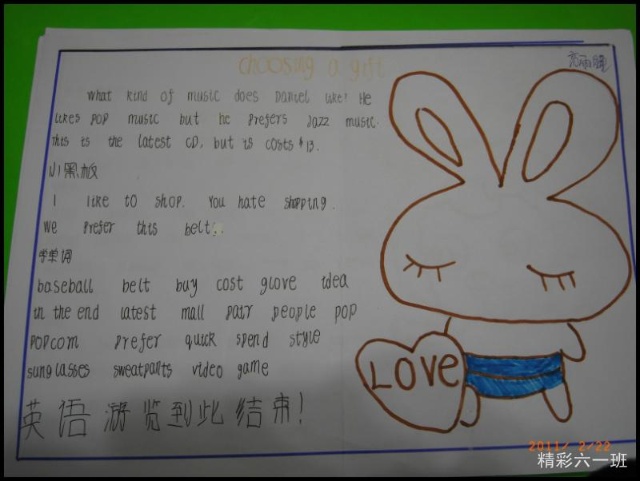 choosing a gift
What kind of music does Daniel like? He
likes pop music but he prefers Jazz music.
this is the latest CD, but is costs $13.
小黑板
I like to shop. You hate shopping.
We prefer this belt.
学单词
baseball belt buy cost glove idea
in the end latest mall pair people pop
popcorn prefer quick spend style
sunglasses sweatpants video game
英语游览到此结束!
LOVE
2011/ 2/22
精彩六一班